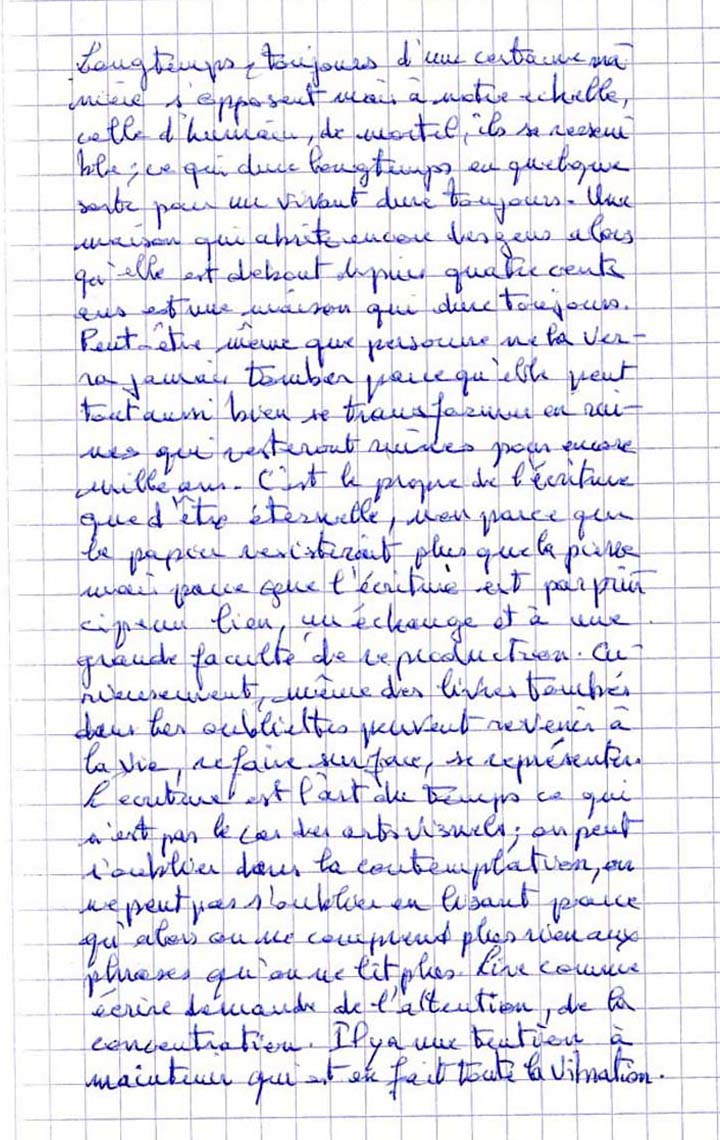 Longtemps, toujours d'une certaine ma
nière s'opposent mais à notre échelle,
celle d'humain, de mortel, ils se ressem
ble ; ce qui dure longtemps en quelque
sorte pour un vivant dure toujours. Une
maison qui abrite encore des gens alors
qu'elle est debout depuis quatre cents
ans est une maison qui dure toujours.
Peut-être même que personne ne la ver-
ra jamais tomber parce qu'elle peut
tout aussi bien se transformer en rui-
nes qui resteront ruines pour encore
mille ans. C'est le propre de l'écriture
que d'être éternelle, non parce que
le papier resisterait plus que la pierre
mais parce que l'écriture est par prin
cipe un lien, un échange et à une
grande faculté de reproduction. Cu-
rieusement, même des livres tombés
dans les oubliettes peuvent revenir à
la vie, refaire surface, se représenter.
L'écriture est l'art du temps ce qui
n'est pas le cas des arts visuels ; on peut
s'oublier dans la contemplation, on
ne peut pas s'oublier en lisant parce
qu'alors on ne comprend plus rien aux
phrases qu'on ne lit plus. Lire comme
écrire demande de l'attention, de la
concentration. Il y a une tention à
maintenir qui est en fait toute la vibration.